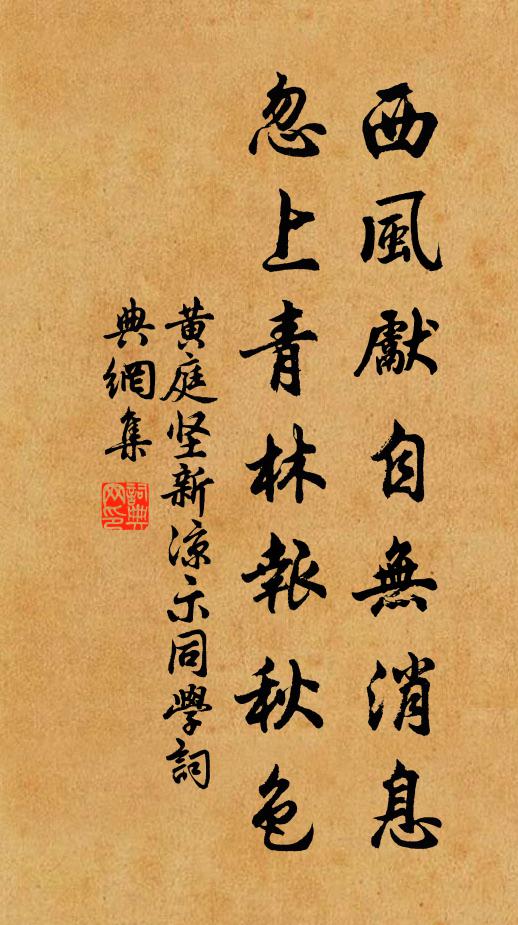 西風獻自無消息
忽上青林報秋色
黃庭坚新涼示同學詞
典網集
詞典網印